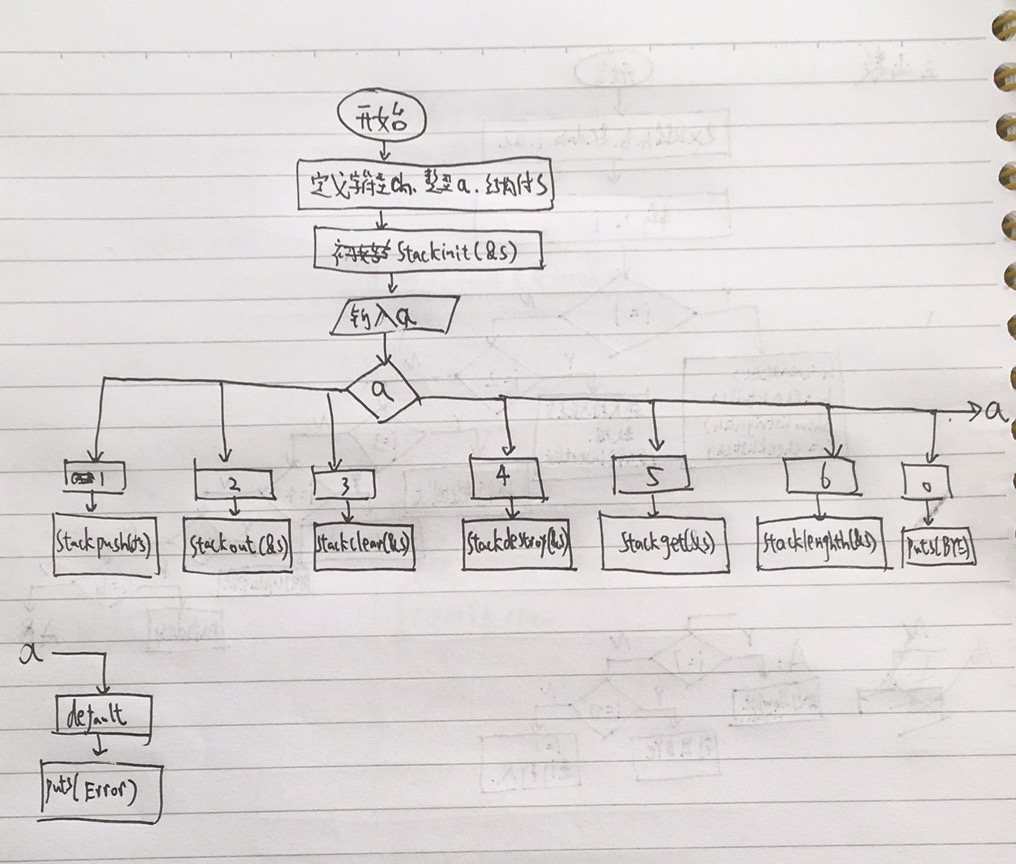 开始
定义字符型ch、整型a、结构体S
Stackinit(&S)
输入a
a
a
1
2
3
4
5
6
0
Stackpush(&S
Stackout(&S)
Stackclear(&S)
Stackdestroy(&S)
Stackget(&S)
Stacklenghth(&S)
puts(BYE)
a
default
puts(Error)